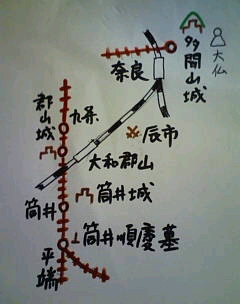 多聞山城
大仏
奈良
郡山城
九条
辰市
大和郡山
筒井
筒井城
筒井順慶墓
平端